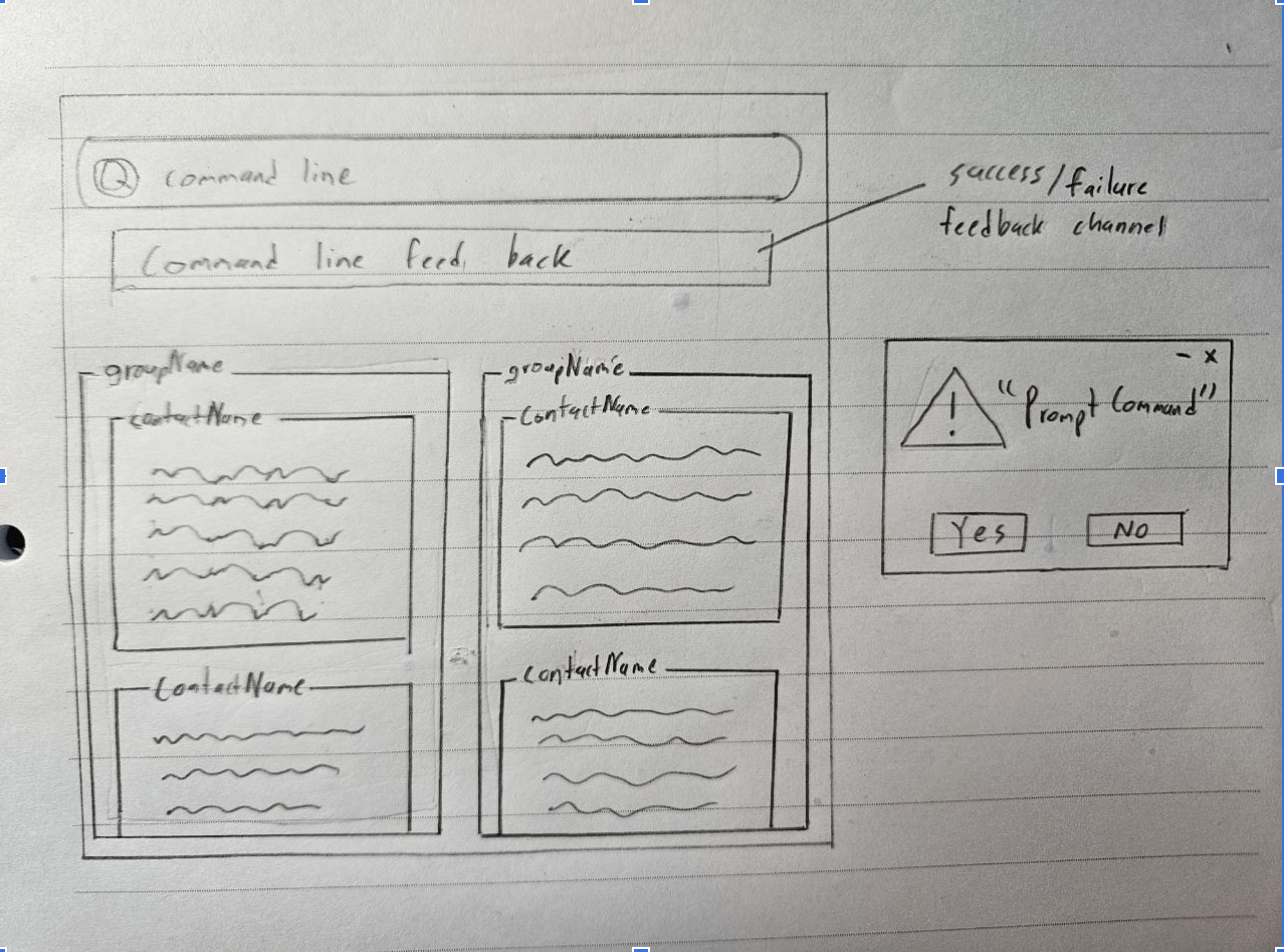 command line
Command line feed back
success/failure
feedback channel
groupName
contactName
ContactName
groupName
ContactName
contactName
- x
! "Prompt Command"
Yes
No